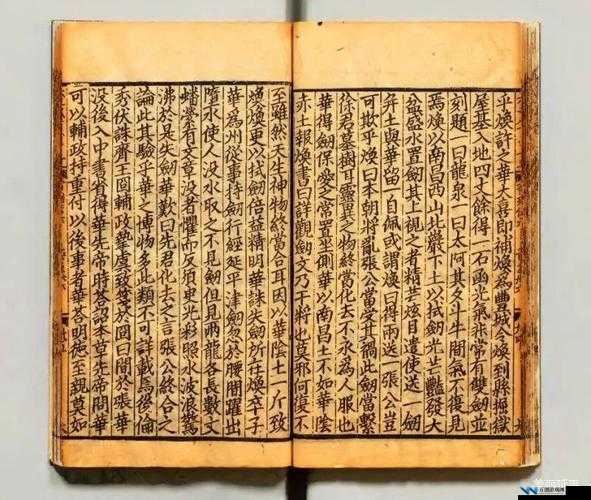 乎煥許之華大喜即補煥為豐城令煥到縣掘獄
屋基入地四丈餘得一石函光氣非常有雙劍並
刻題一曰龍泉一曰太阿其夕斗牛間氣不復見
焉煥以南昌西山北巖下土以拭劍光芒艷發大
盆盛水置劍其上視之者精芒炫目遣使送一劍
并土與華留一自佩或謂煥曰得兩送一張公豈
可欺乎煥曰本朝將亂張公當受其禍此劍當繫
徐君墓樹耳靈異之物終當化去不永為人服也
華得劍保愛之常置坐側華以南昌土不如華陰
赤土報煥書曰詳觀劍文乃干將也莫邪何復不
至雖然天生神物終當合耳因以華陰土一斤致
煥煥更以拭劍倍益精明華誅失劍所在煥卒子
華為州從事持劍行經延平津劍忽於腰間躍出
墮水使人沒水取之不見劍但見兩龍各長數丈
蟠縈有文章沒者懼而反須臾光彩照水波浪驚
沸於是失劍華歎曰先君化去之言張公終合之
論此其驗乎華之博物多此類不可詳載焉後倫
秀伏誅齊王冏輔政摯虞致牋於冏曰間於張華
沒後入中書省得華先帝時荅詔本草先帝問華
可以輔政持重付以後事者華荅明德至親莫如